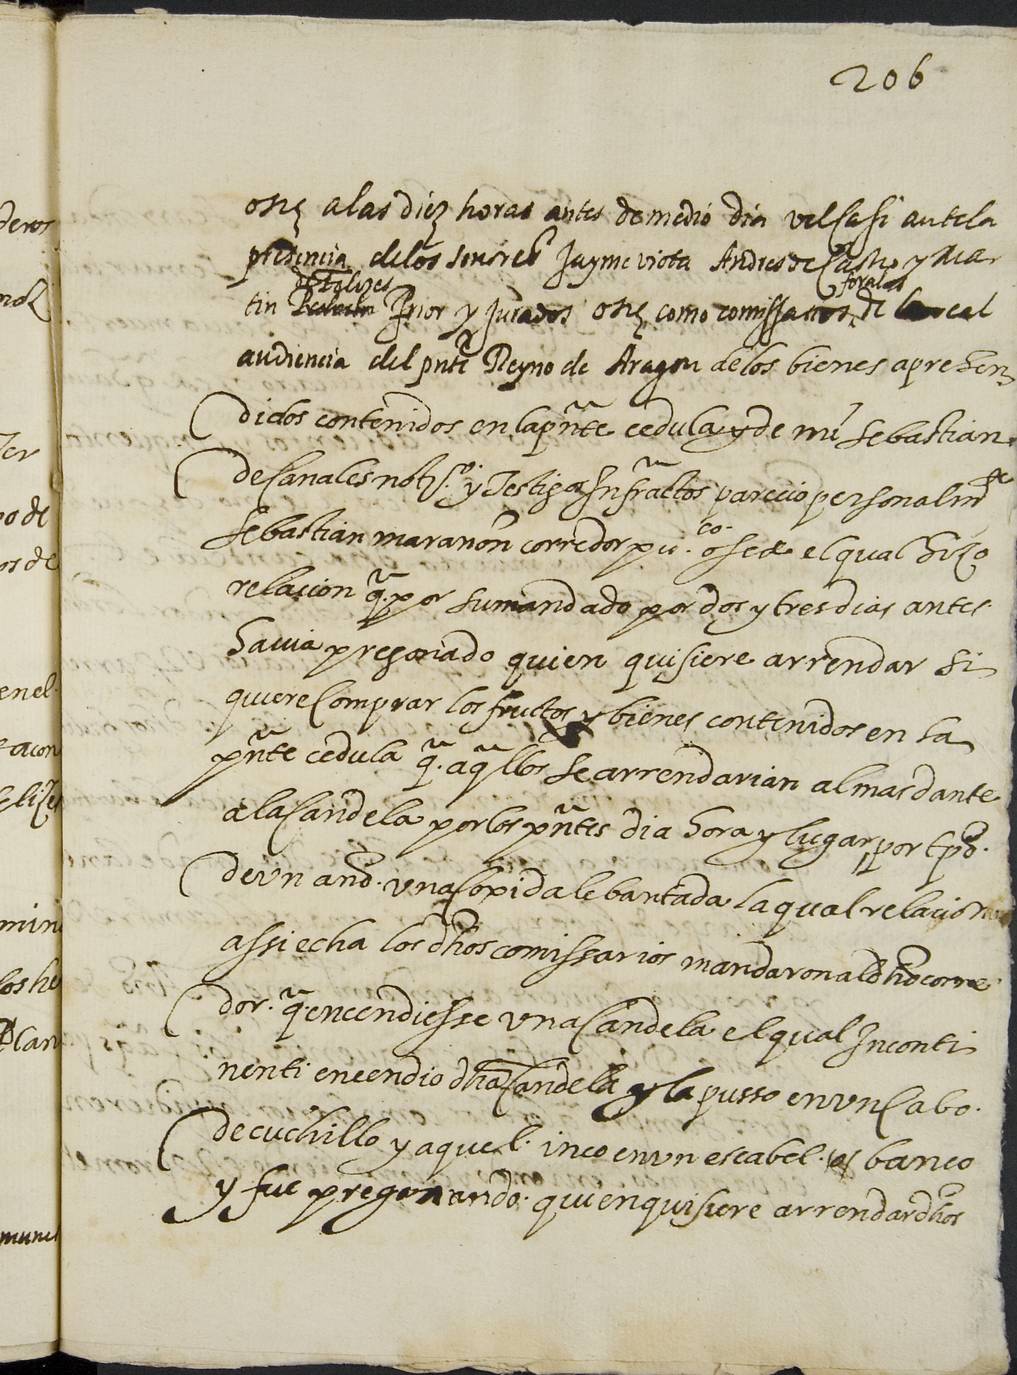 206
osẽ a las diez horas antes de medio dia vel sasi ante la
presencia de los senores Jayme viota Andres de Castro y Mar
de felizes forales
tin Prior y Jurados osẽ como comissarios de la real
audiencia del pnte Reyno de Aragon de los bienes aprehen
didos contenidos en la pñte cedula y de mi Sebastian
de Canales notº y testigos Infrãctos parecio personalmte
Sebastian marañon corredor puco osẽ el qual hizo
relacion q̃ por su mandado por dos y tres dias antes
hauia pregonado quien quisiere arrendar si
quiere Comprar los fructos y bienes contenidos en la
pñte cedula q̃ aq̃llos se arrendarian al mas dante
a la Candela por los pñtes dia hora y lugar por tpõ
de vn anõ vna Coxida lebantada la qual relacion
assi echa los dhos comissarios mandaron al dho corre
dor q̃ encendiesse vna Candela el qual Inconti
nenti encendio dha Candela y la pusso en vn Cabo
de cuchillo y aquel inco en vn escabel o banco
y fue pregonando quien quisiere arrendar dhos
deros
ter
po de
os de
en el
acon
felizes
min
los he
Can